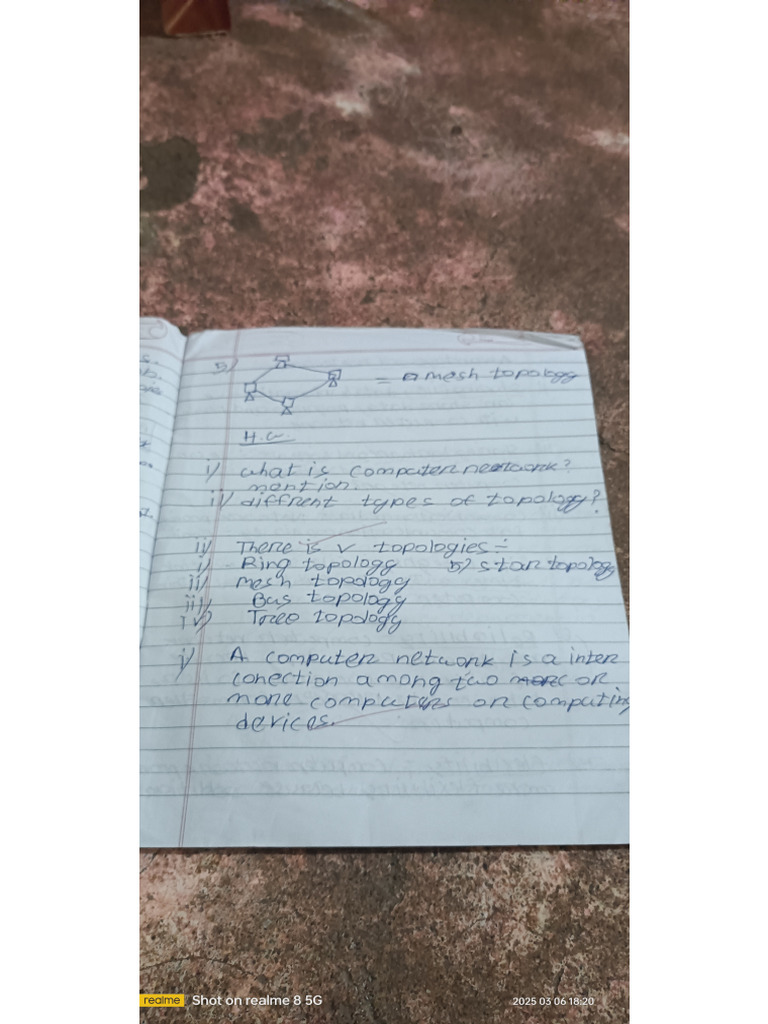 5) = a mesh topology
H.W
i) what is computer network?
mention.
ii) diffrent types of topology?
ii) There is v topologies ÷
i) Ring topology 5) star topology
ii) mesh topology
iii) Bus topology
iv) Tree topology
i) A computer network is a inter
conection among two or
more computers or computing
devices.
realme Shot on realme 8 5G 2025 03 06 18:20